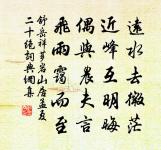 遠水去微茫
近峰互明晦
偶與農夫言
飛雨靄而至
舒岳祥岩山居孟夏
二十绝詞典網集